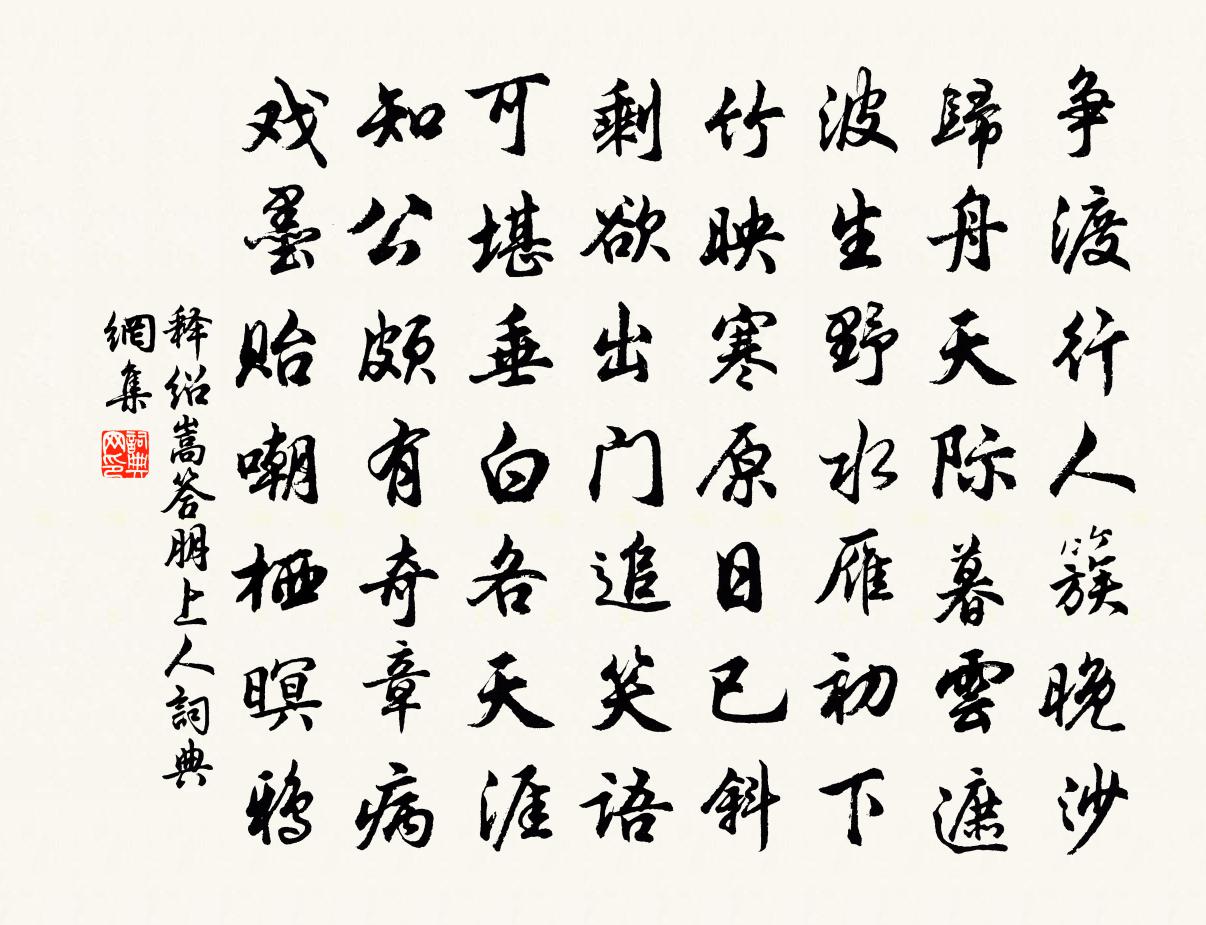 争渡行人簇晚沙
歸舟天际暮雲遮
波生野水雁初下
竹映寒原日已斜
剩欲出门追笑語
可堪垂白各天涯
知公頗有奇章病
戏墨貽嘲栖暝鸦
释绍嵩答朋上人詞典
網集
詞典
网印